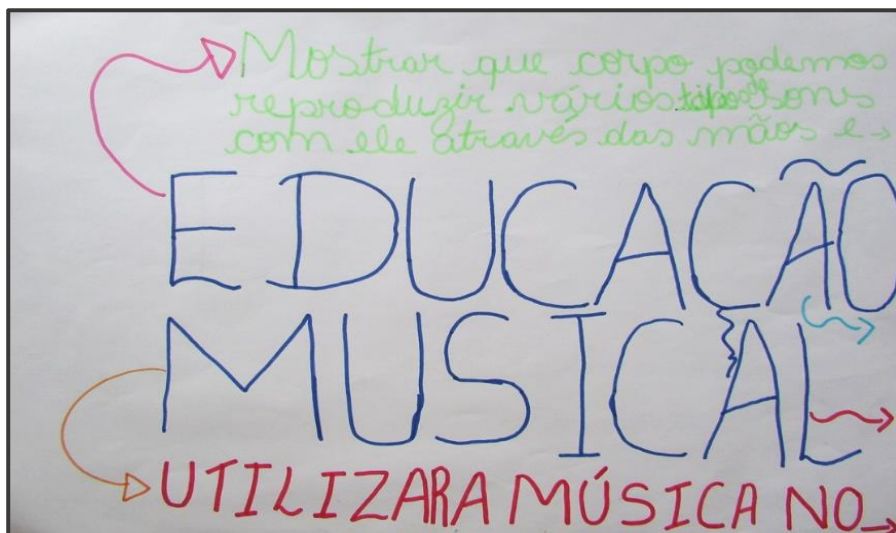 Mostrar que corpo podemos
reproduzir vários tipos de sons
com ele através das mãos e
EDUCAÇÃO
MUSICAL
UTILIZAR A MÚSICA NO